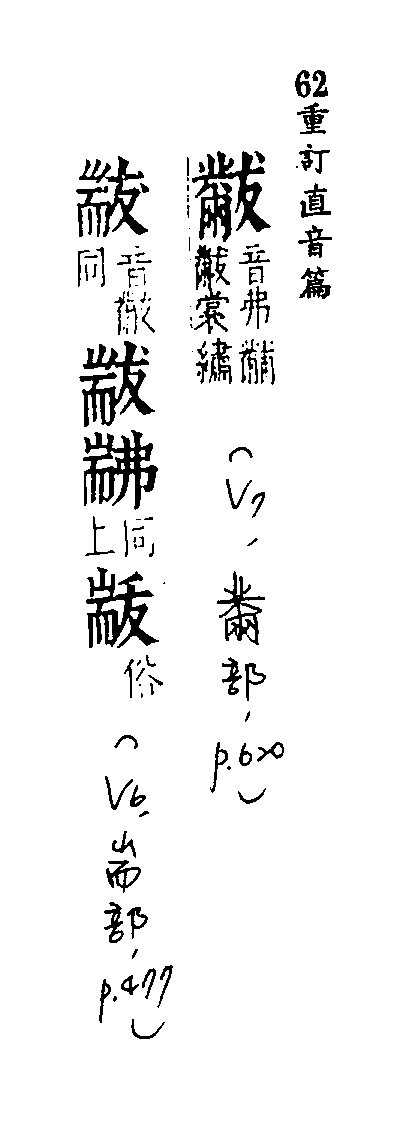 62重訂直音篇
黻 音弗黼黻裳繡 (V7, 黹部, p.620)
音黻同 同上 俗 (V6, 耑部, p.477)